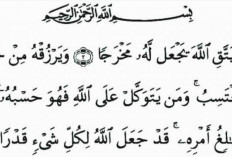 بِسْمِ اللَّهِ الرَّحْمَٰنِ الرَّحِيمِ
يَتَّقِ اللَّهَ يَجْعَل لَّهُ مَخْرَجًا ۝ وَيَرْزُقْهُ مِنْ
يَحْتَسِبُ ۚ وَمَن يَتَوَكَّلْ عَلَى اللَّهِ فَهُوَ حَسْبُهُ
أَمْرِهِ ۚ قَدْ جَعَلَ اللَّهُ لِكُلِّ شَيْءٍ قَدْرًا